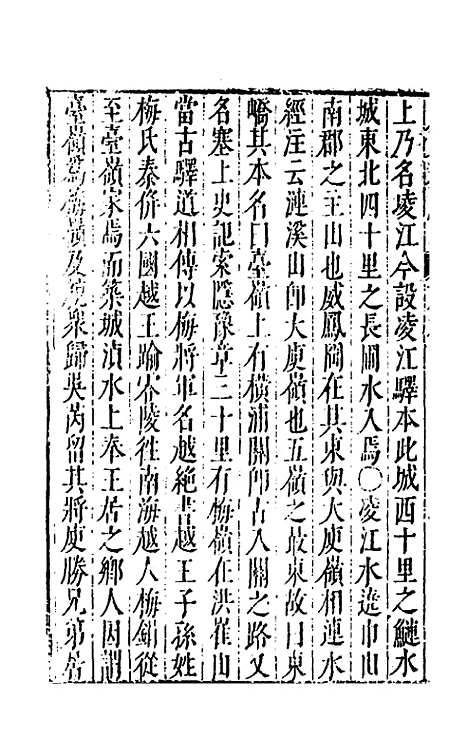 上乃名凌江今設凌江驛本此城西十里之鰱水
城東北四十里之長圃水入焉〇凌江水遶巾山
南郡之主山也威鳳岡在其東與大庾嶺相連水
經注云漣溪山卽大庾嶺也五嶺之最東故曰東
嶠其本名曰臺嶺上有橫浦關卽古入關之路又
名塞上史記索隱豫章三十里有梅嶺在洪崖山
當古驛道相傳以梅將軍名越絶書越王子孫姓
梅氏秦併六國越王踰零陵徃南海越人梅鋗從
至臺嶺家焉而築城湞水上奉王居之鄉人因謂
臺嶺爲梅嶺及鋗衆歸吳芮留其將庾勝兄弟居